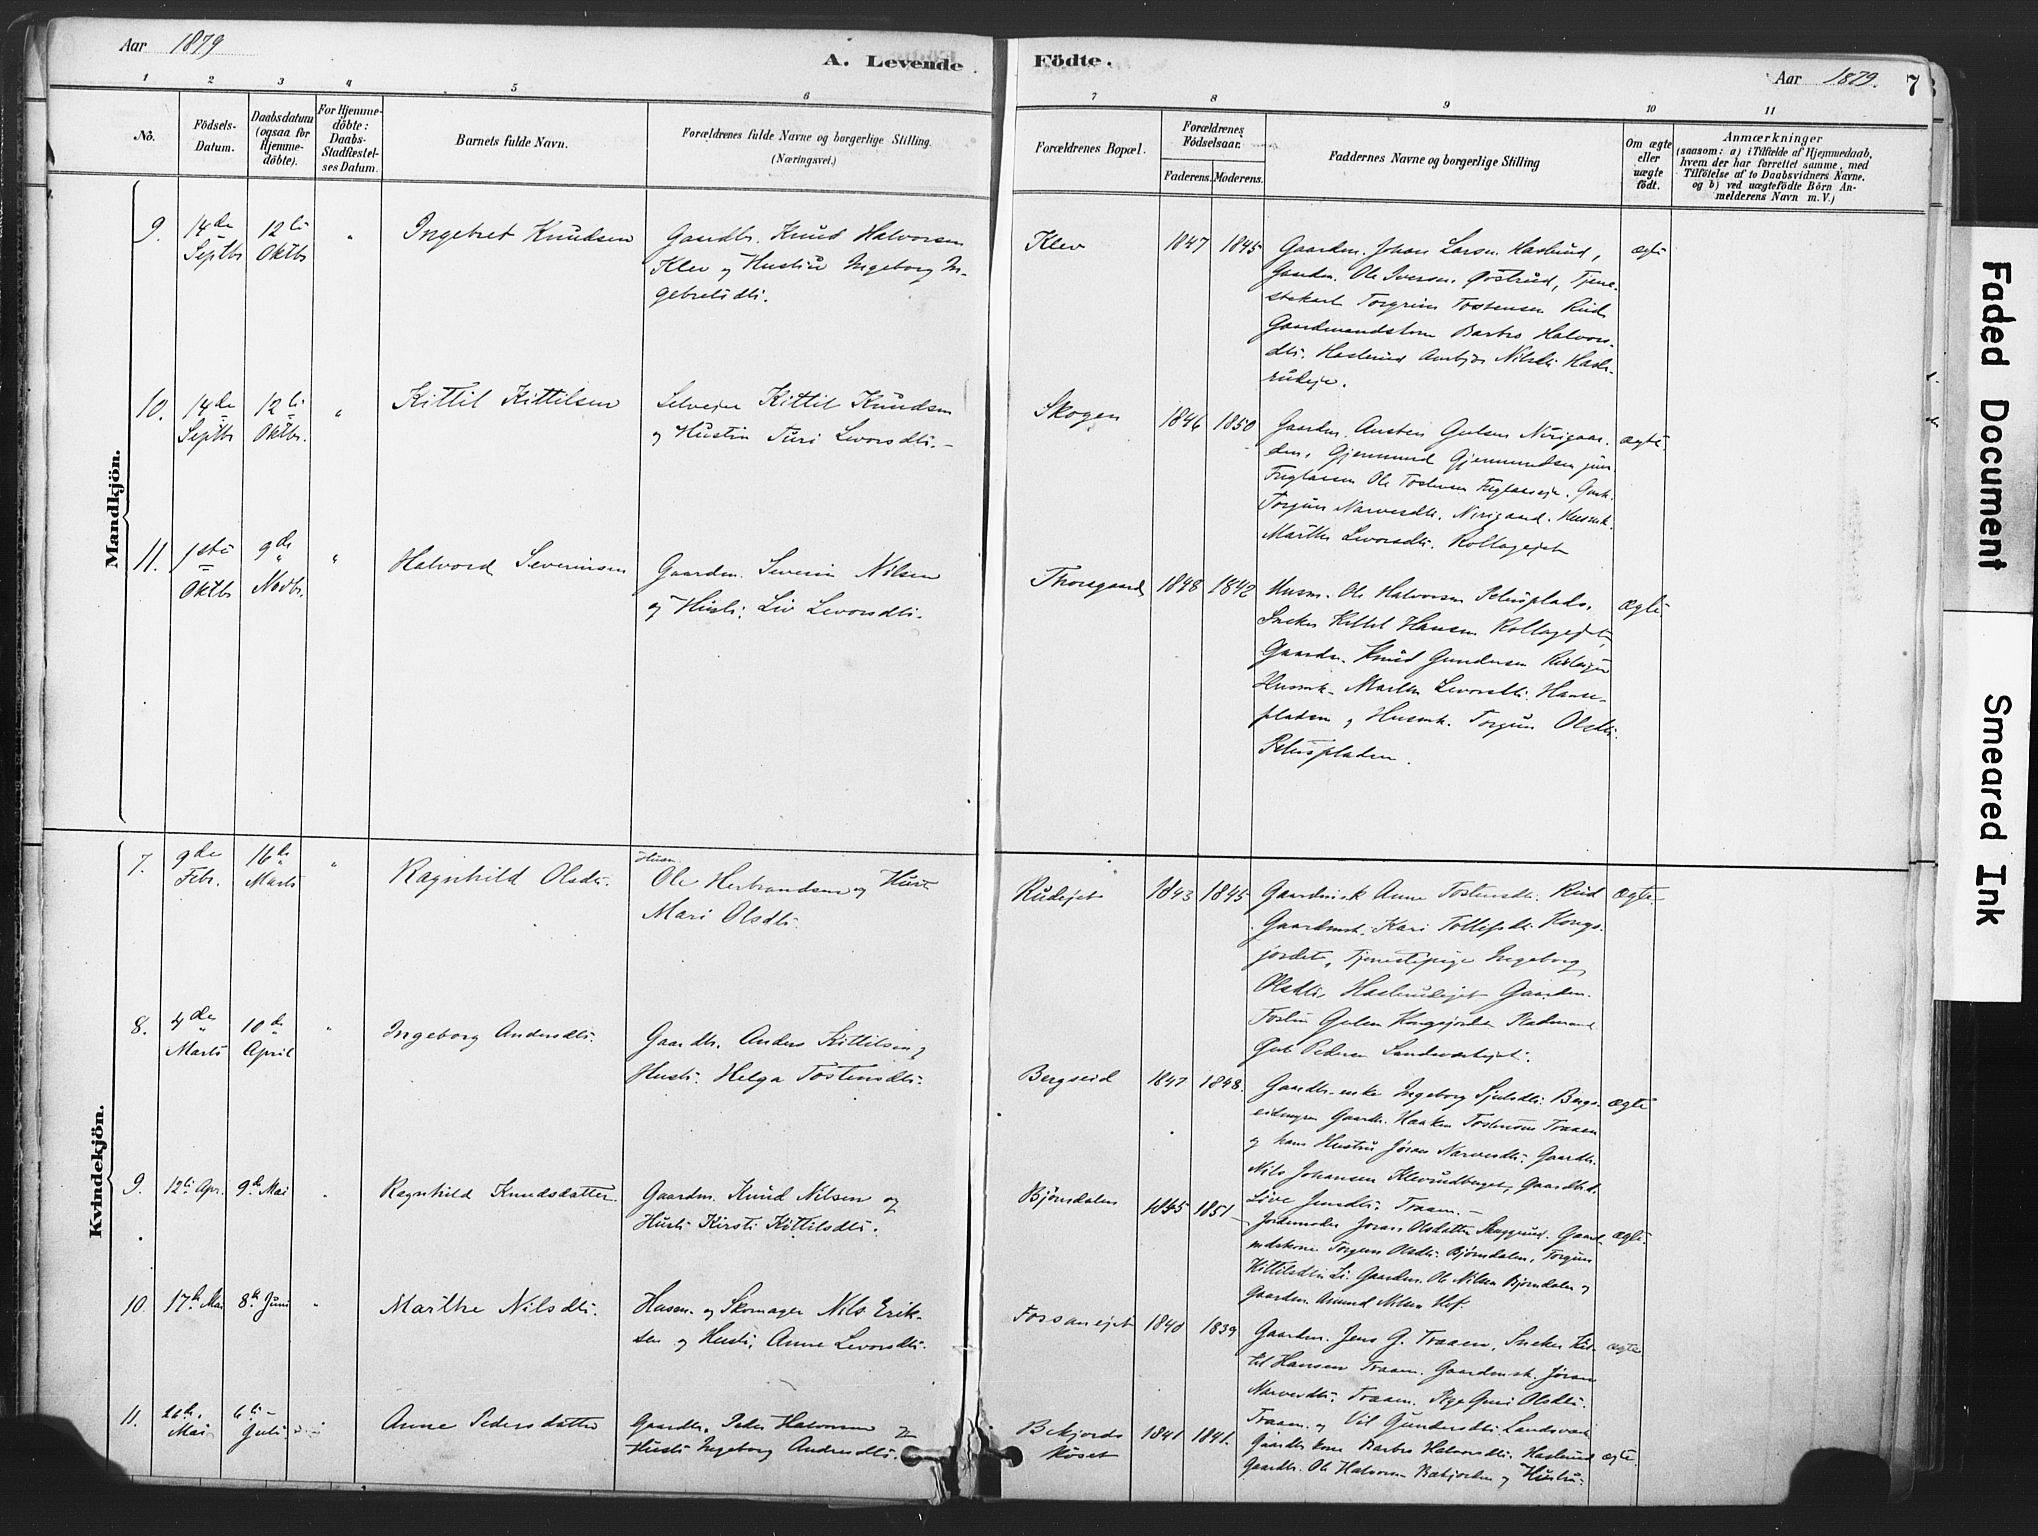 Aar 1879
A. Levende Födte.
Aar 1879. 7
1 2 3 4 5 6 7 8 9 10 11
No.
Födsels-
Datum.
Daabsdatum
(ogsaa for
Hjemme-
döbte).
For Hjemme-
döbte:
Daabs-
Stadfæstel-
ses Datum.
Barnets fulde Navn.
Forældrenes fulde Navne og borgerlige Stilling.
(Næringsvei.)
Forældrenes Bopæl.
Forældrenes
Födselsaar.
Faderens. Moderens.
Faddernes Navne og borgerlige Stilling
Om ægte
eller
uægte
födt.
Anmærkninger
(saasom: a) i Tilfælde af Hjemmedaab,
hvem der har forrettet samme, med
Tilföielse af to Daabsvidners Navne,
og b) ved uægtefödte Börn An-
melderens Navn m. V.)
Mandkjön.
9. 14de Septbr 12te Oktbr " Ingebret Knudsen
Gaardbr. Knud Halvorsen
Klev og Hustru Ingeborg In-
gebretsdtr.
Klev 1847 1845
Gaardm. Johan Larsen Haslerud,
Gaardm. Ole Iversen Østrud, Tjene-
stekarl Torgrim Tostensen Rud
Gaardmandskone Barbro Halvors-
dtr. Haslerud Nilsdtr. Hasle-
rudeje.
ægte
10. 14de Septbr 12te Oktbr. " Kittil Kittilsen
Selveier Kittil Knudsen
og Hustru Turi Levorsdtr.
Skogen 1846 1850
Gaardm. Austen Gulsen Nirigaar-
den, Gjermund Gjermundsen jun.
Ole Tostensen
Torgun Narvesdtr. Nirigaard. Husmk.
Marthe Levorsdtr. Kollagejet
ægte
11. 1ste Oktbr 9de Novbr. " Halvord Severinsen
Gaardm. Severin Nilsen
og Hustr. Liv Levorsdtr.
Thorsgaard 1848 1842
Husm. Ole Halvorsen Petersplads,
Sneker Kittil Hansen Kollagejet
Gaardm. Knud Gundersen
Husmk. Marthe Levorsdtr. Hanse-
pladsen og Husmk. Torgun Olsdtr.
Peterspladsen.
ægte
Kvindekjön.
7. 9de Febr. 16de Marts " Ragnhild Olsdtr.
Husm.
Ole Herbrandsen og Hustr.
Mari Olsdtr.
Rudejet 1843 1845
Gaardmsk Anne Tostensdtr. Rud
Gaardmsk. Kari Tollefsdtr. Kongs-
jordet, Tjenestepige Ingeborg
Olsdtr, Haslerudejet Gaardm.
Tosten Gulsen Kongsjordet
Pedersen Landsværkejet.
ægte
8. 4de Marts 10de April " Ingeborg Andersdtr.
Gaardbr. Anders Kittilsen og
Hustr. Helga Tostensdtr.
Bergseid 1847 1848.
Gaardbr. enke Ingeborg Sjulsdtr. Bergs-
eidmyren Gaardbr. Haaken Tostensen Traaen
og hans Hustru Jøran Narvesdtr. Gaardbr.
Nils Johansen Klevrudberget, Gaardbr.
Live Jensdtr. Traaen.
ægte
9. 12te Apr. 9de Mai " Ragnhild Knudsdatter
Gaardm. Knud Nilsen og
Hustr. Kirsti Kittilsdtr.
Bjørnsdalen 1845 1851
Jordemoder Jøran Olsdatter Skaggrud. Gaard-
mdskone Torgun Olsdtr. Bjørndalen, Torgun
Kittilsdtr Li. Gaardm. Ole Nilsen Bjørndalen og
Gaardm. Amund Nilsen Hof.
ægte
10. 17de Mai 8de Juni " Marthe Nilsdtr.
Husm. og Skomager Nils Erik-
sen og Hustr. Anne Levorsdtr.
Forsanejet 1840 1839
Gaardm. Jens G. Traaen, Sneker Kit-
til Hansen Traaen. Gaardmsk. Jøran
Narvesdtr. Traaen. Pige Guri Olsdtr.
Traaen og Gundersdtr. Landsværk
ægte
11. 26de Mai 6te Juli Anne Pedersdatter
Gaardbr. Peder Halvorsen og
Hustr. Ingeborg Andersdtr.
Bekjords
køset
1841 1841.
Gaardbr. kone Barbro Halvorsdtr. Haslerud
Gaardbr. Ole Halvorsen Bækjorden og Hustru:
ægte.
Faded Document
Smeared Ink